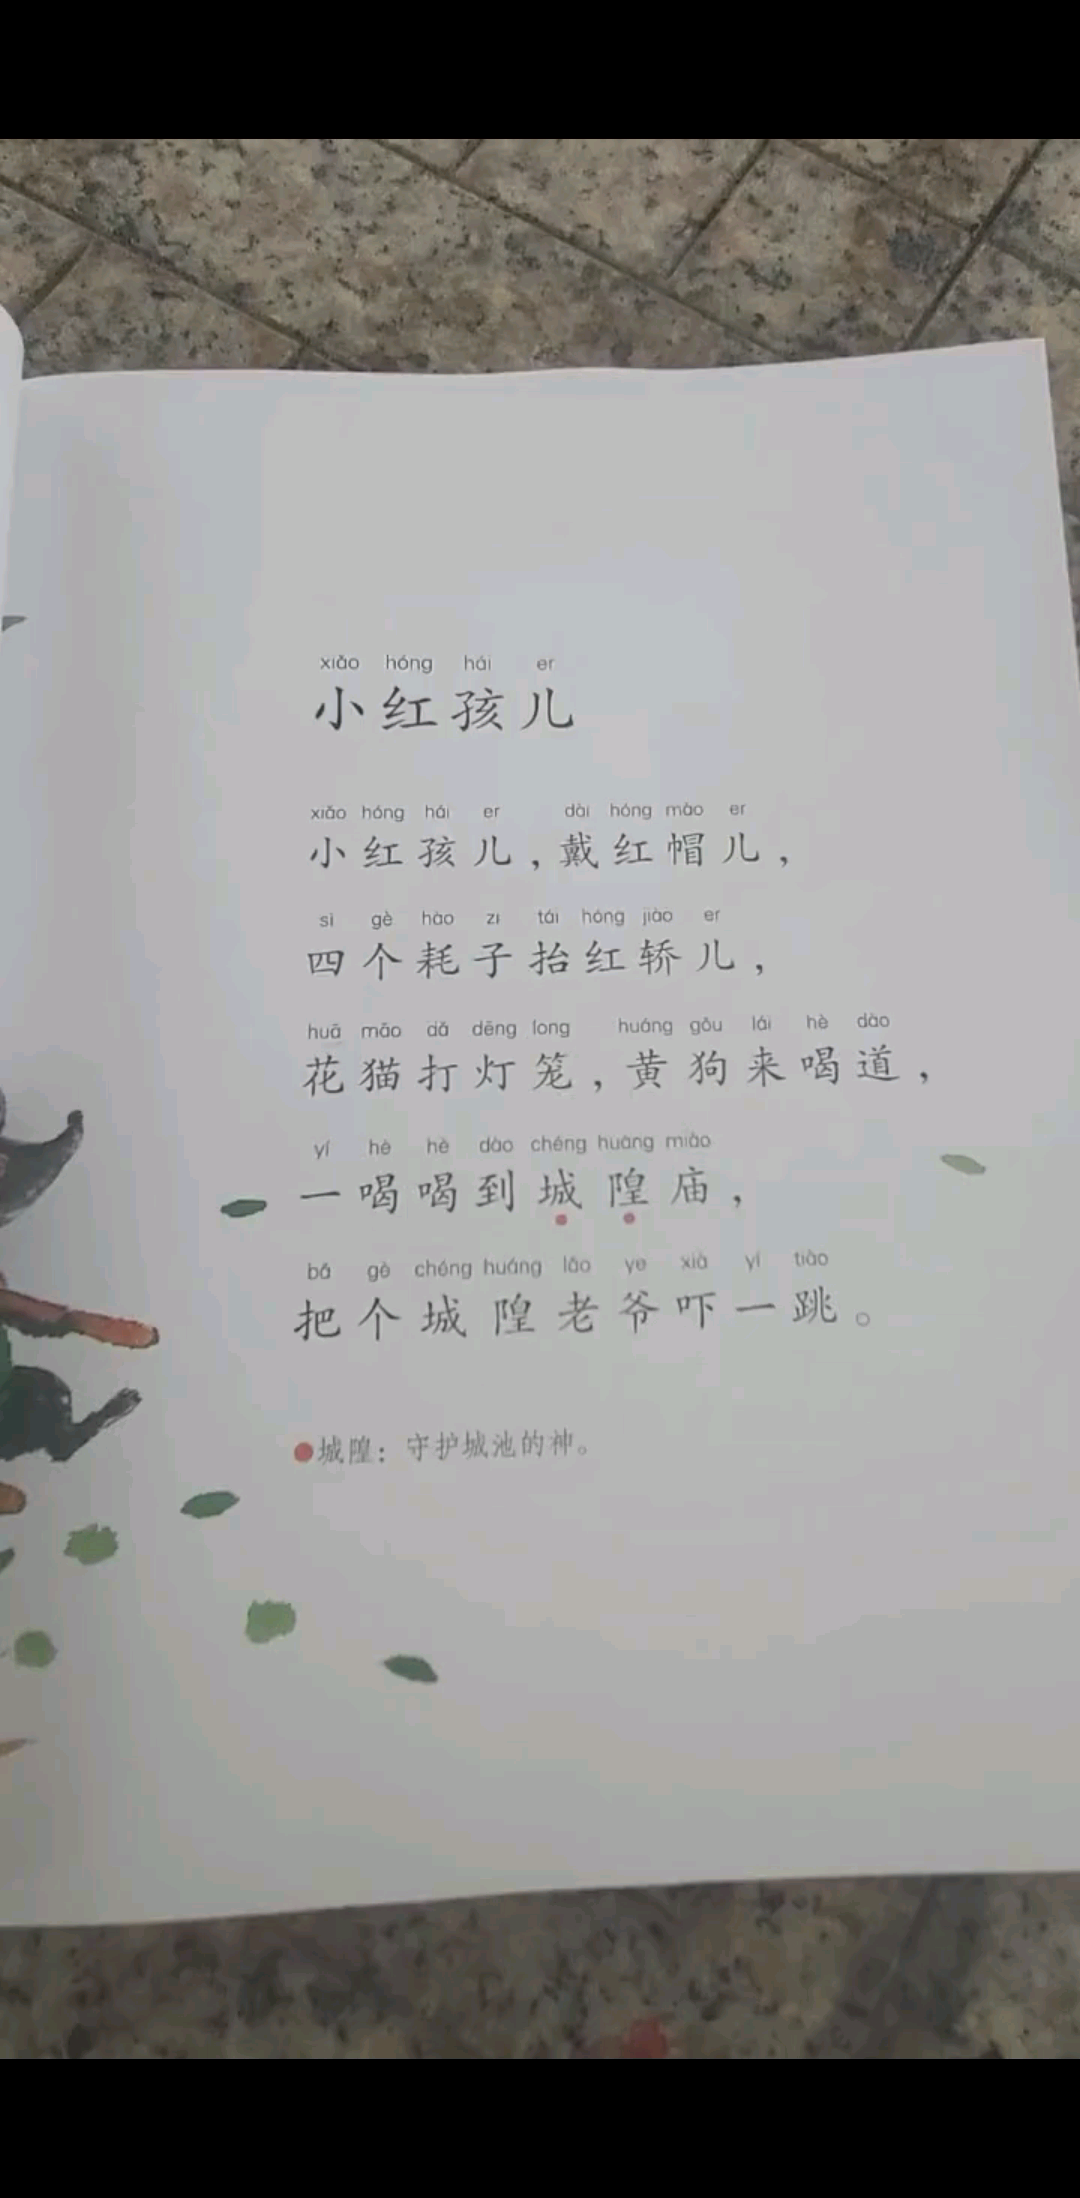 xiǎo hóng hái er
小红孩儿
xiǎo hóng hái er dài hóng mào er
小红孩儿，戴红帽儿，
sì gè hào zi tái hóng jiào er
四个耗子抬红轿儿，
huā māo dǎ dēng long huáng gǒu lái hè dào
花猫打灯笼，黄狗来喝道，
yí hè hè dào chéng huáng miào
一喝喝到城隍庙，
bǎ gè chéng huáng lǎo ye xià yí tiào
把个城隍老爷吓一跳。
城隍：守护城池的神。